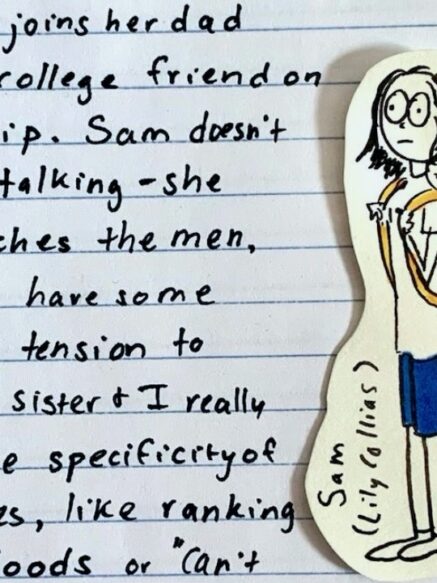 joins her dad
college friend on
ip. Sam doesn't
talking - she
ches the men,
have some
tension to
sister & I really
e specificity of
es, like ranking
foods or "Can't
Sam
(Lily Collias)